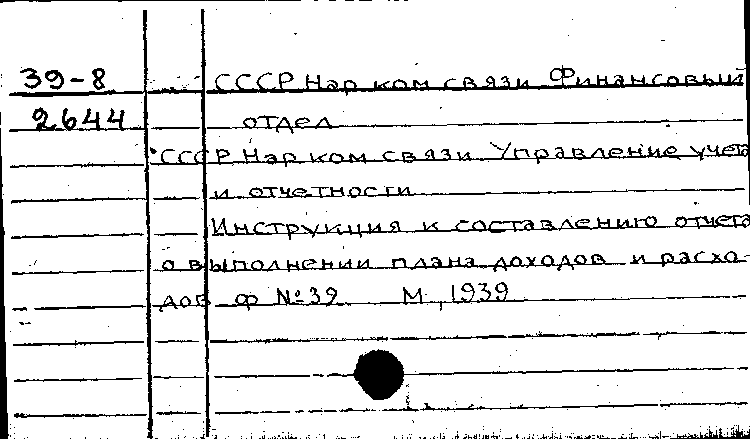 39-8 СССР Нар ком связи Финансовый
2644 отдел
СССР Нар ком связи Управление учета
и отчетности
Инструкция к составлению отчета
о выполнении плана доходов и расхо-
дов ф №39 М, 1939